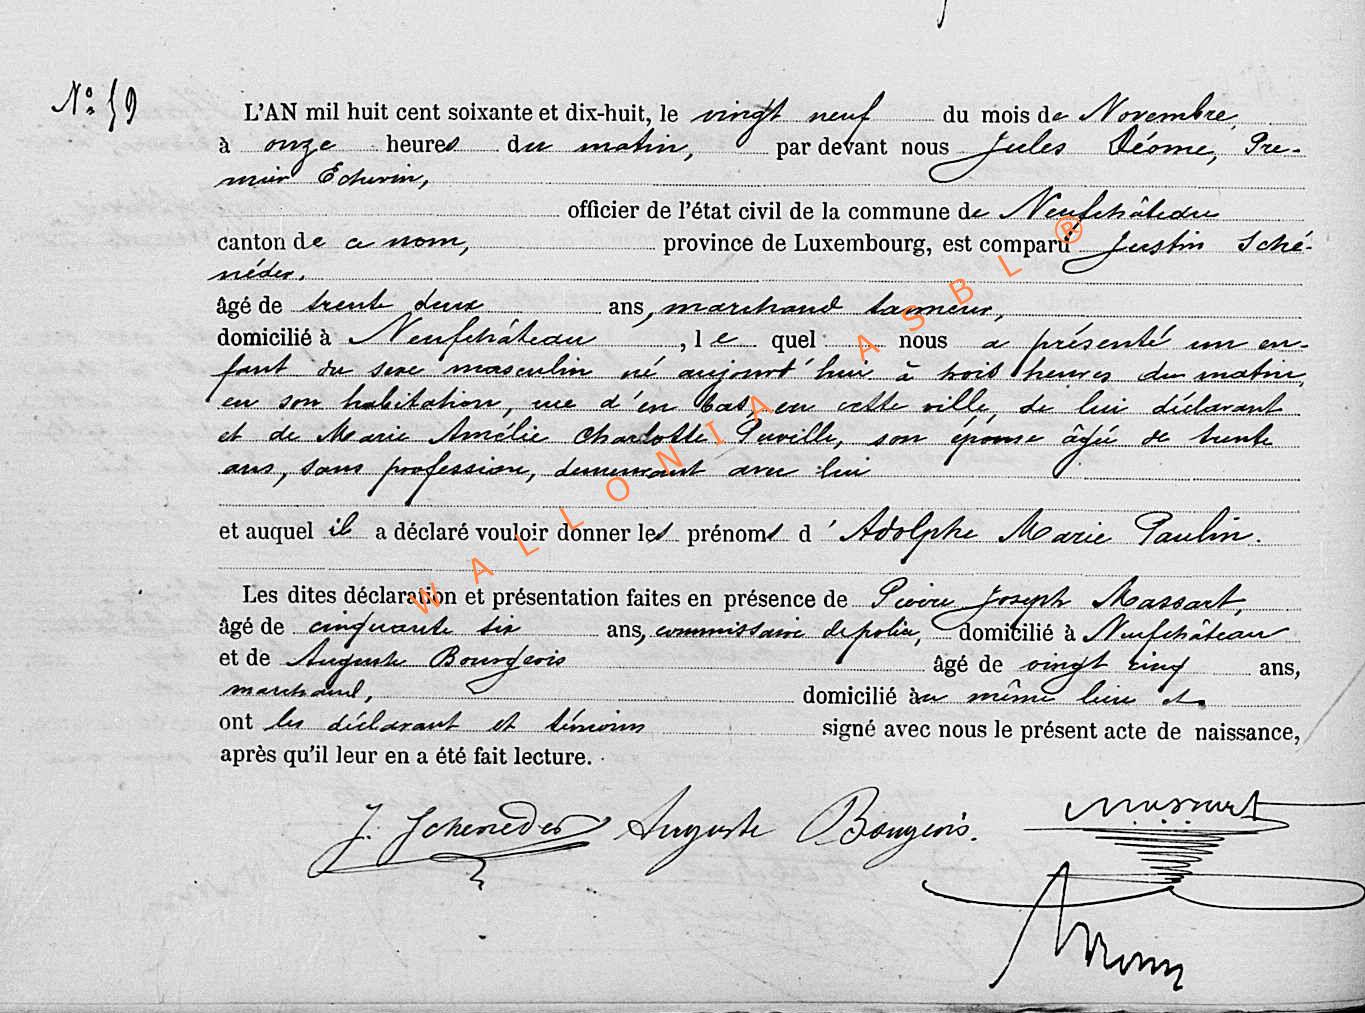 N° 59
L'AN mil huit cent soixante et dix-huit, le vingt neuf du mois de Novembre,
à onze heures du matin, par devant nous Jules Déome, Pre-
mier Echevin,
officier de l'état civil de la commune de Neufchâteau
canton de ce nom, province de Luxembourg, est comparu Justin Sché-
néder,
âgé de trente deux ans, marchand tanneur,
domicilié à Neufchâteau, lequel nous a présenté un en-
fant du sexe masculin né aujourd'hui à trois heures du matin,
en son habitation, rue d'en bas, en cette ville, de lui déclarant
et de Marie Amélie Charlotte Puville, son épouse âgée de trente
ans, sans profession, demeurant avec lui
et auquel il a déclaré vouloir donner les prénoms d'Adolphe Marie Paulin.
Les dites déclaration et présentation faites en présence de Pierre Joseph Massart,
âgé de cinquante six ans, commissaire de police, domicilié à Neufchâteau
et de Auguste Bourgeois âgé de vingt cinq ans,
marchand, domicilié àu même lieu et
ont les déclarant et témoins signé avec nous le présent acte de naissance,
après qu'il leur en a été fait lecture.
J. Scheneder Auguste Bourgeois. Massart
WALLONIA ASBL ®